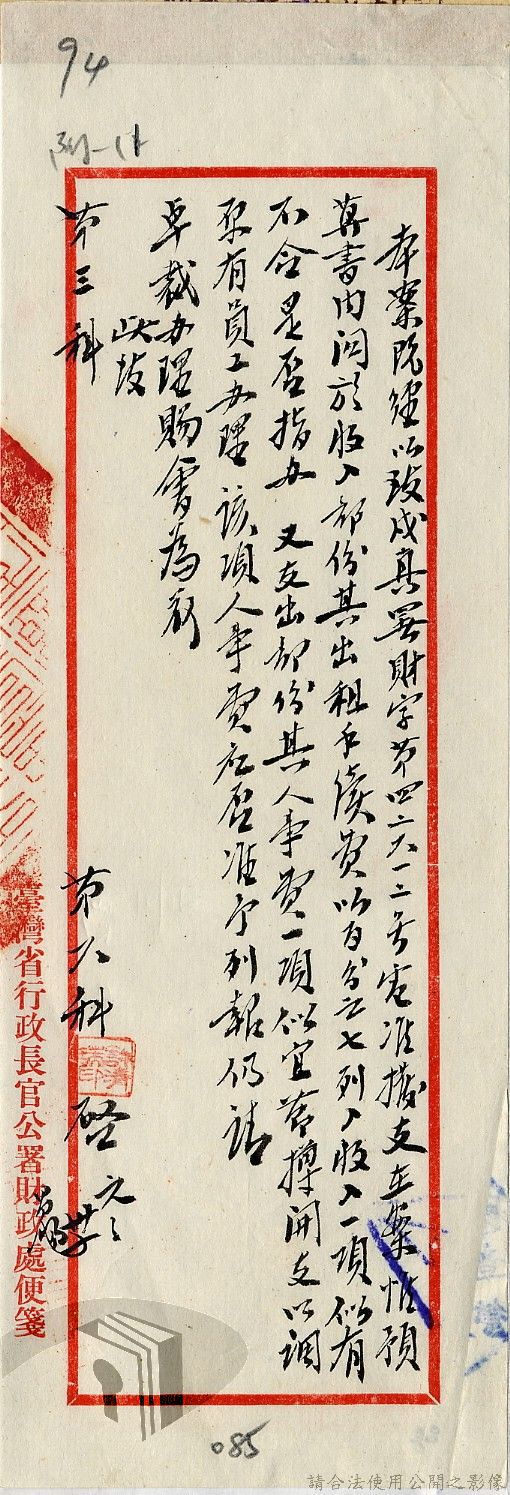 94
附-11
本案既經以致戌真署財字第四二六一二號電准撥支在案惟預
算書內關於收入部份其出租手續費以百分之七列入收入一項似有
不合是否指办 又支出部份其人事費一項似宜節撙開支以調
原有員工办理該項人事費应否准予列報仍請
卓裁办理賜會為荷
此致
第三科
第六科 啓 元、
臺灣省行政長官公署財政處便箋
085
請合法使用公開之影像